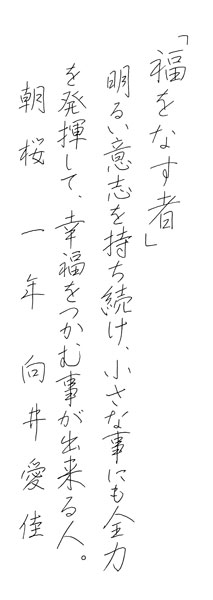 「福をなす者」
明るい意志を持ち続け、小さな事にも全力
を発揮して、幸福をつかむ事が出来る人。
朝桜 一年 向井愛佳